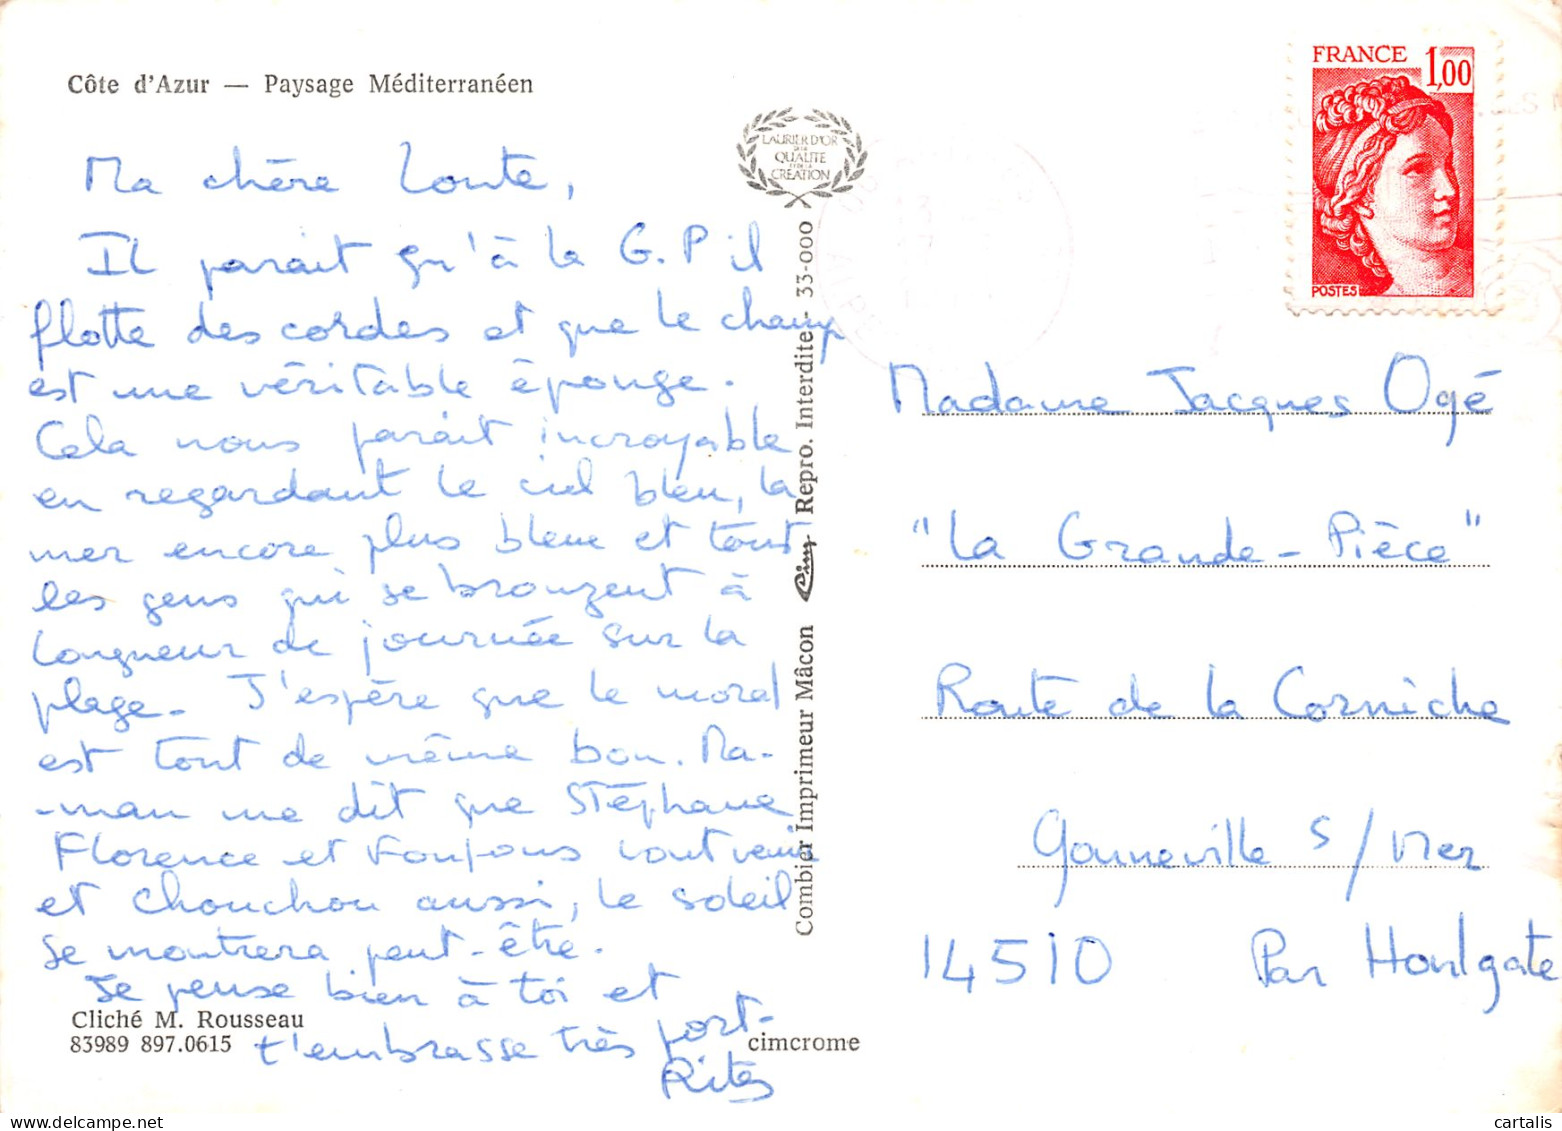 Côte d'Azur — Paysage Méditerranéen
LAURIER D'OR
DE LA
QUALITE
ET DE LA
CREATION
FRANCE 1,00
POSTES
Ma chère Loute,
Il parait qu'à la G.P il
flotte des cordes et que le champ
est une véritable éponge.
Cela nous parait incroyable
en regardant le ciel bleu, la
mer encore plus bleue et tout
les gens qui se bronzent à
longueur de journée sur la
plage. J'espère que le moral
est tout de même bon. Ma-
-man me dit que Stéphane
Florence et Foufous vont venir
et chouchou aussi, le soleil
se montrera peut-être.
Je pense bien à toi et
t'embrasse très fort.
Cliché M. Rousseau
83989 897.0615
cimcrome
Combier Imprimeur Mâcon Cim Repro. Interdite - 33-000
Madame Jacques Ogé
"La Grande-Pièce"
Route de la Corniche
Gonneville s/Mer
14510 Par Houlgate
cartalis